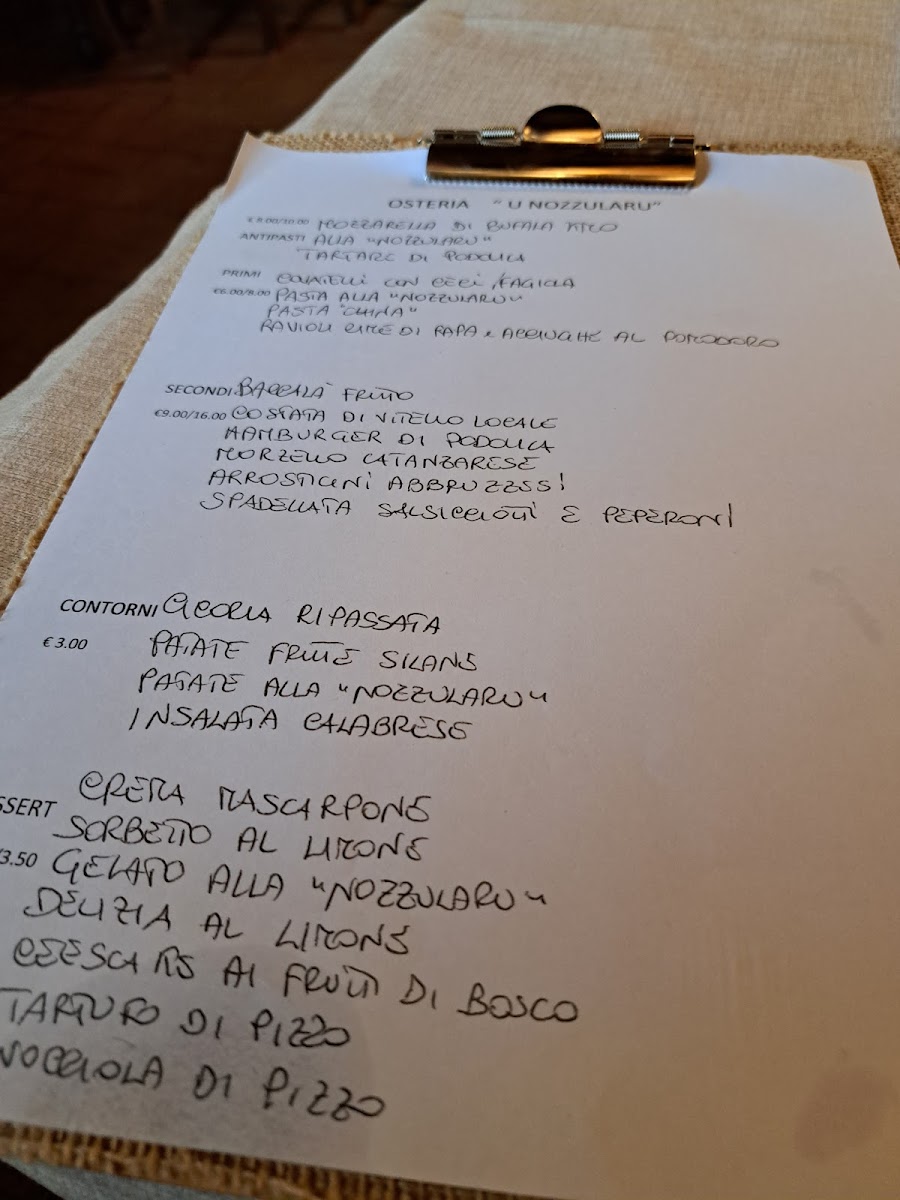 OSTERIA "U NOZZULARU"
€ 8.00/10.00 MOZZARELLA DI BUFALA
ANTIPASTI ALLA "NOZZULARU"
TARTARE DI PODOLICA
PRIMI CAVATELLI CON CECI /FAGIOLI
€6.00/8.00 PASTA ALLA "NOZZULARU"
PASTA "CHINA"
RAVIOLI CIME DI RAPA E ACCIUGHE AL POMODORO
SECONDI BACCALÀ FRITTO
€9.00/16.00 COSTATA DI VITELLO LOCALE
HAMBURGER DI PODOLICA
MORZELLO CATANZARESE
ARROSTICINI ABBRUZZESI
SPADELLATA SALSICCIOTTI E PEPERONI
CONTORNI CICORIA RIPASSATA
€ 3.00 PATATE FRITTE SILANE
PATATE ALLA "NOZZULARU"
INSALATA CALABRESE
SSERT CREMA MASCARPONE
SORBETTO AL LIMONE
/3.50 GELATO ALLA "NOZZULARU"
DELIZIA AL LIMONE
AI FRUTTI DI BOSCO
TARTUFO DI PIZZO
NOCCIOLA DI PIZZO